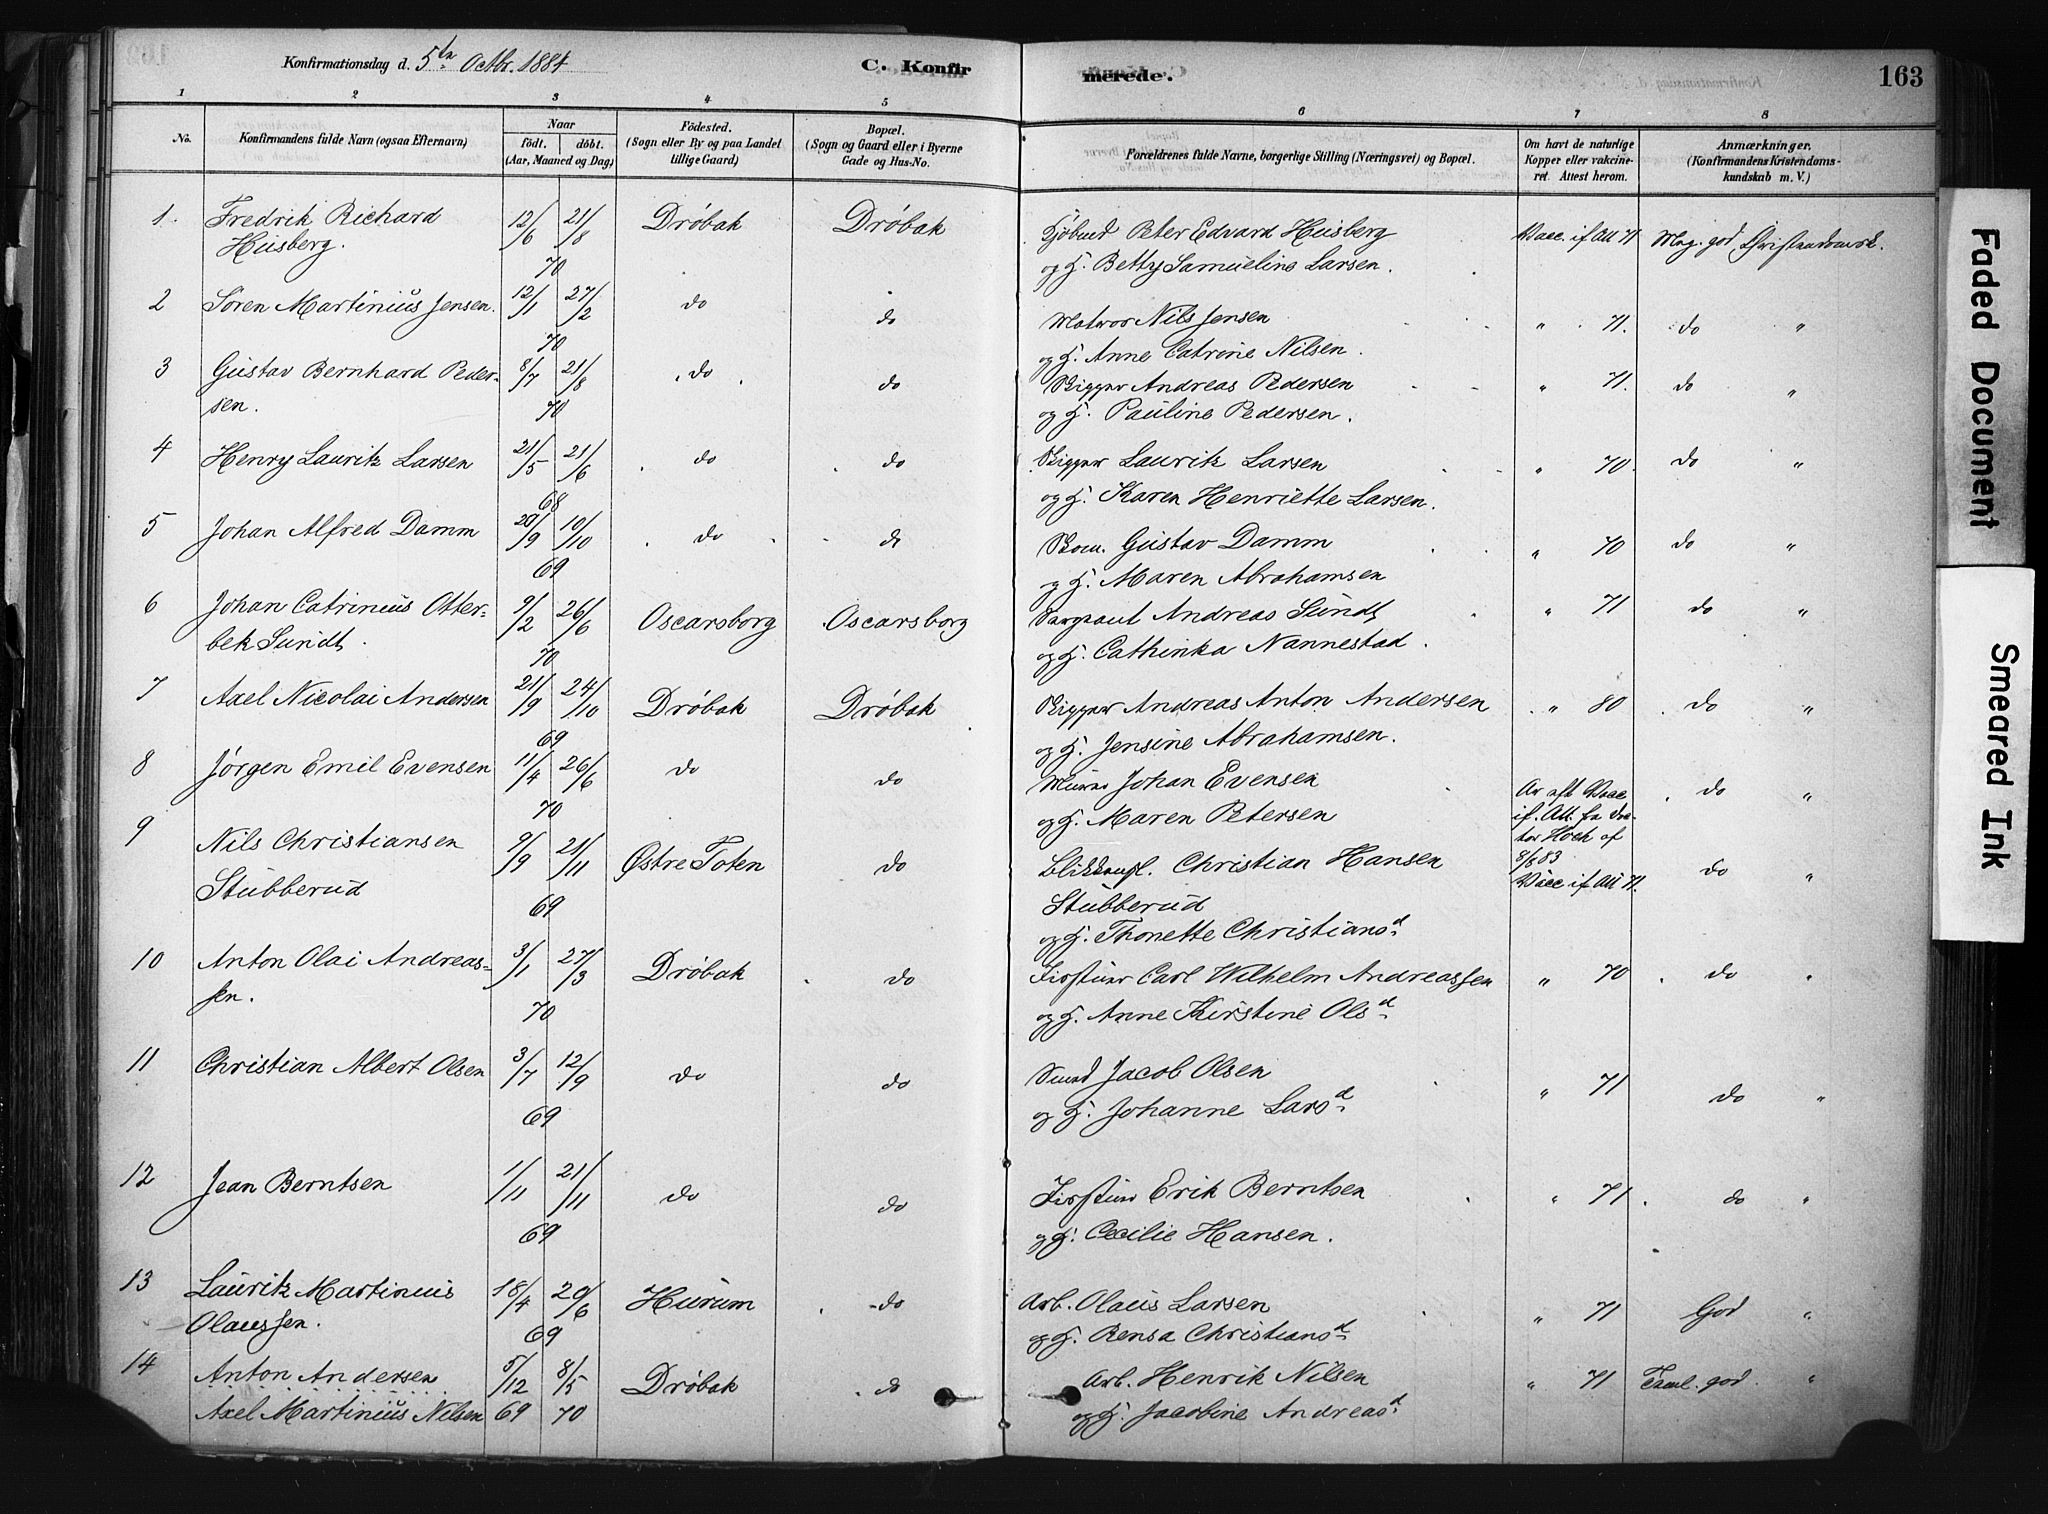 Konfirmationsdag d. 5te Octbr. 1884
C. Konfirmerede.
163
1 2 3 4 5 6 7 8
No.
Konfirmandens fulde Navn (ogsaa Efternavn)
Naar
födt. döbt.
(Aar, Maaned og Dag)
Födested.
(Sogn eller By og paa Landet
tillige Gaard)
Bopæl.
(Sogn og Gaard eller i Byerne
Gade og Hus-No.
Forældrenes fulde Navne, borgerlige Stilling (Næringsvei) og Bopæl.
Om havt de naturlige
Kopper eller vakcine-
ret. Attest herom.
Anmærkninger.
(Konfirmandens Kristendoms-
kundskab m. V.)
1. Fredrik Richard 12/6 21/8 Dröbak Dröbak Kjöbmd Peter Edvard Husberg Vacc. if Att 71 Meg. god Christendomsk.
Husberg. 70 og H. Betty Samueline Larsen.
2 Sören Martinius Jensen. 12/1 27/2 do do Matros Nils Jensen " 71. do "
70 og H. Anne Catrine Nilsen.
3 Gustav Bernhard Peder- 8/7 21/8 do do Skipper Andreas Pedersen " 71. do "
sen. 70 og H. Pauline Pedersen.
4 Henry Lauritz Larsen 21/5 21/6 do do Skipper Lauritz Larsen " 70. do "
68 og H. Karen Henriette Larsen.
5 Johan Alfred Damm 20/9 10/10 do do Skom. Gustav Damm " 70 do "
69 og H. Maren Abrahamsen
6 Johan Catrinius Otter- 9/2 26/6 Oscarsborg Oscarsborg Sergeant Andreas Sundt " 71 do "
bek Sundt. 70 og H. Cathinka Nannestad.
7 Axel Nicolai Andersen 21/9 24/10 Dröbak Dröbak Skipper Andreas Anton Andersen " 80 do "
69 og H. Jensine Abrahamsen.
8 Jörgen Emil Evensen 11/4 26/6 do do Murer Johan Evensen Er oft Vacc do "
70 og H. Maren Petersen if. Att. fra Dok-
tor Hoek af
8/8 83
9 Nils Christiansen 9/9 21/11 Østre Toten do Christian Hansen Vacc if Att 71. do "
Stubberud 69 Stubberud
og H. Thonette Christiansd.
10 Anton Olai Andreas- 3/1 27/3 Dröbak do Carl Wilhelm Andreassen " 70 do "
sen. 70 og H. Anne Kirstine Olsd.
11 Christian Albert Olsen 3/7 12/9 do do Smed Jacob Olsen " 71 do "
69 og H. Johanne Larsd.
12 Jean Berntsen 1/11 21/11 do do Erik Berntsen " 71 do "
69 og H. Cecilie Hansen.
13 Lauritz Martinius 18/4 20/6 Hurum do Arb. Olaus Larsen " 71 God "
Olaussen. 69 og H. Rensa Christiansd.
14 Anton Andersen 5/12 8/5 Dröbak do Arb. Henrik Nilsen " 71 Teml. god "
Axel Martinius Nilsen 69 70 og H. Jacobine Andreasd.
Faded Document
Smeared Ink